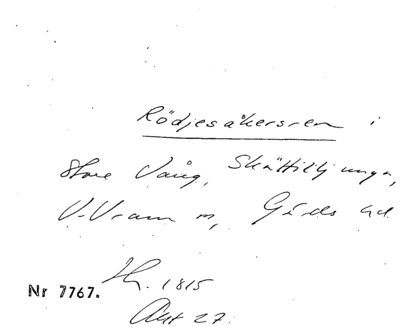 Rödjesåkersren i
Store Vång, Skättilljunga,
V-Vram m, Gärds hd
Sk. 1815
Nr 7767.
Akt 27.